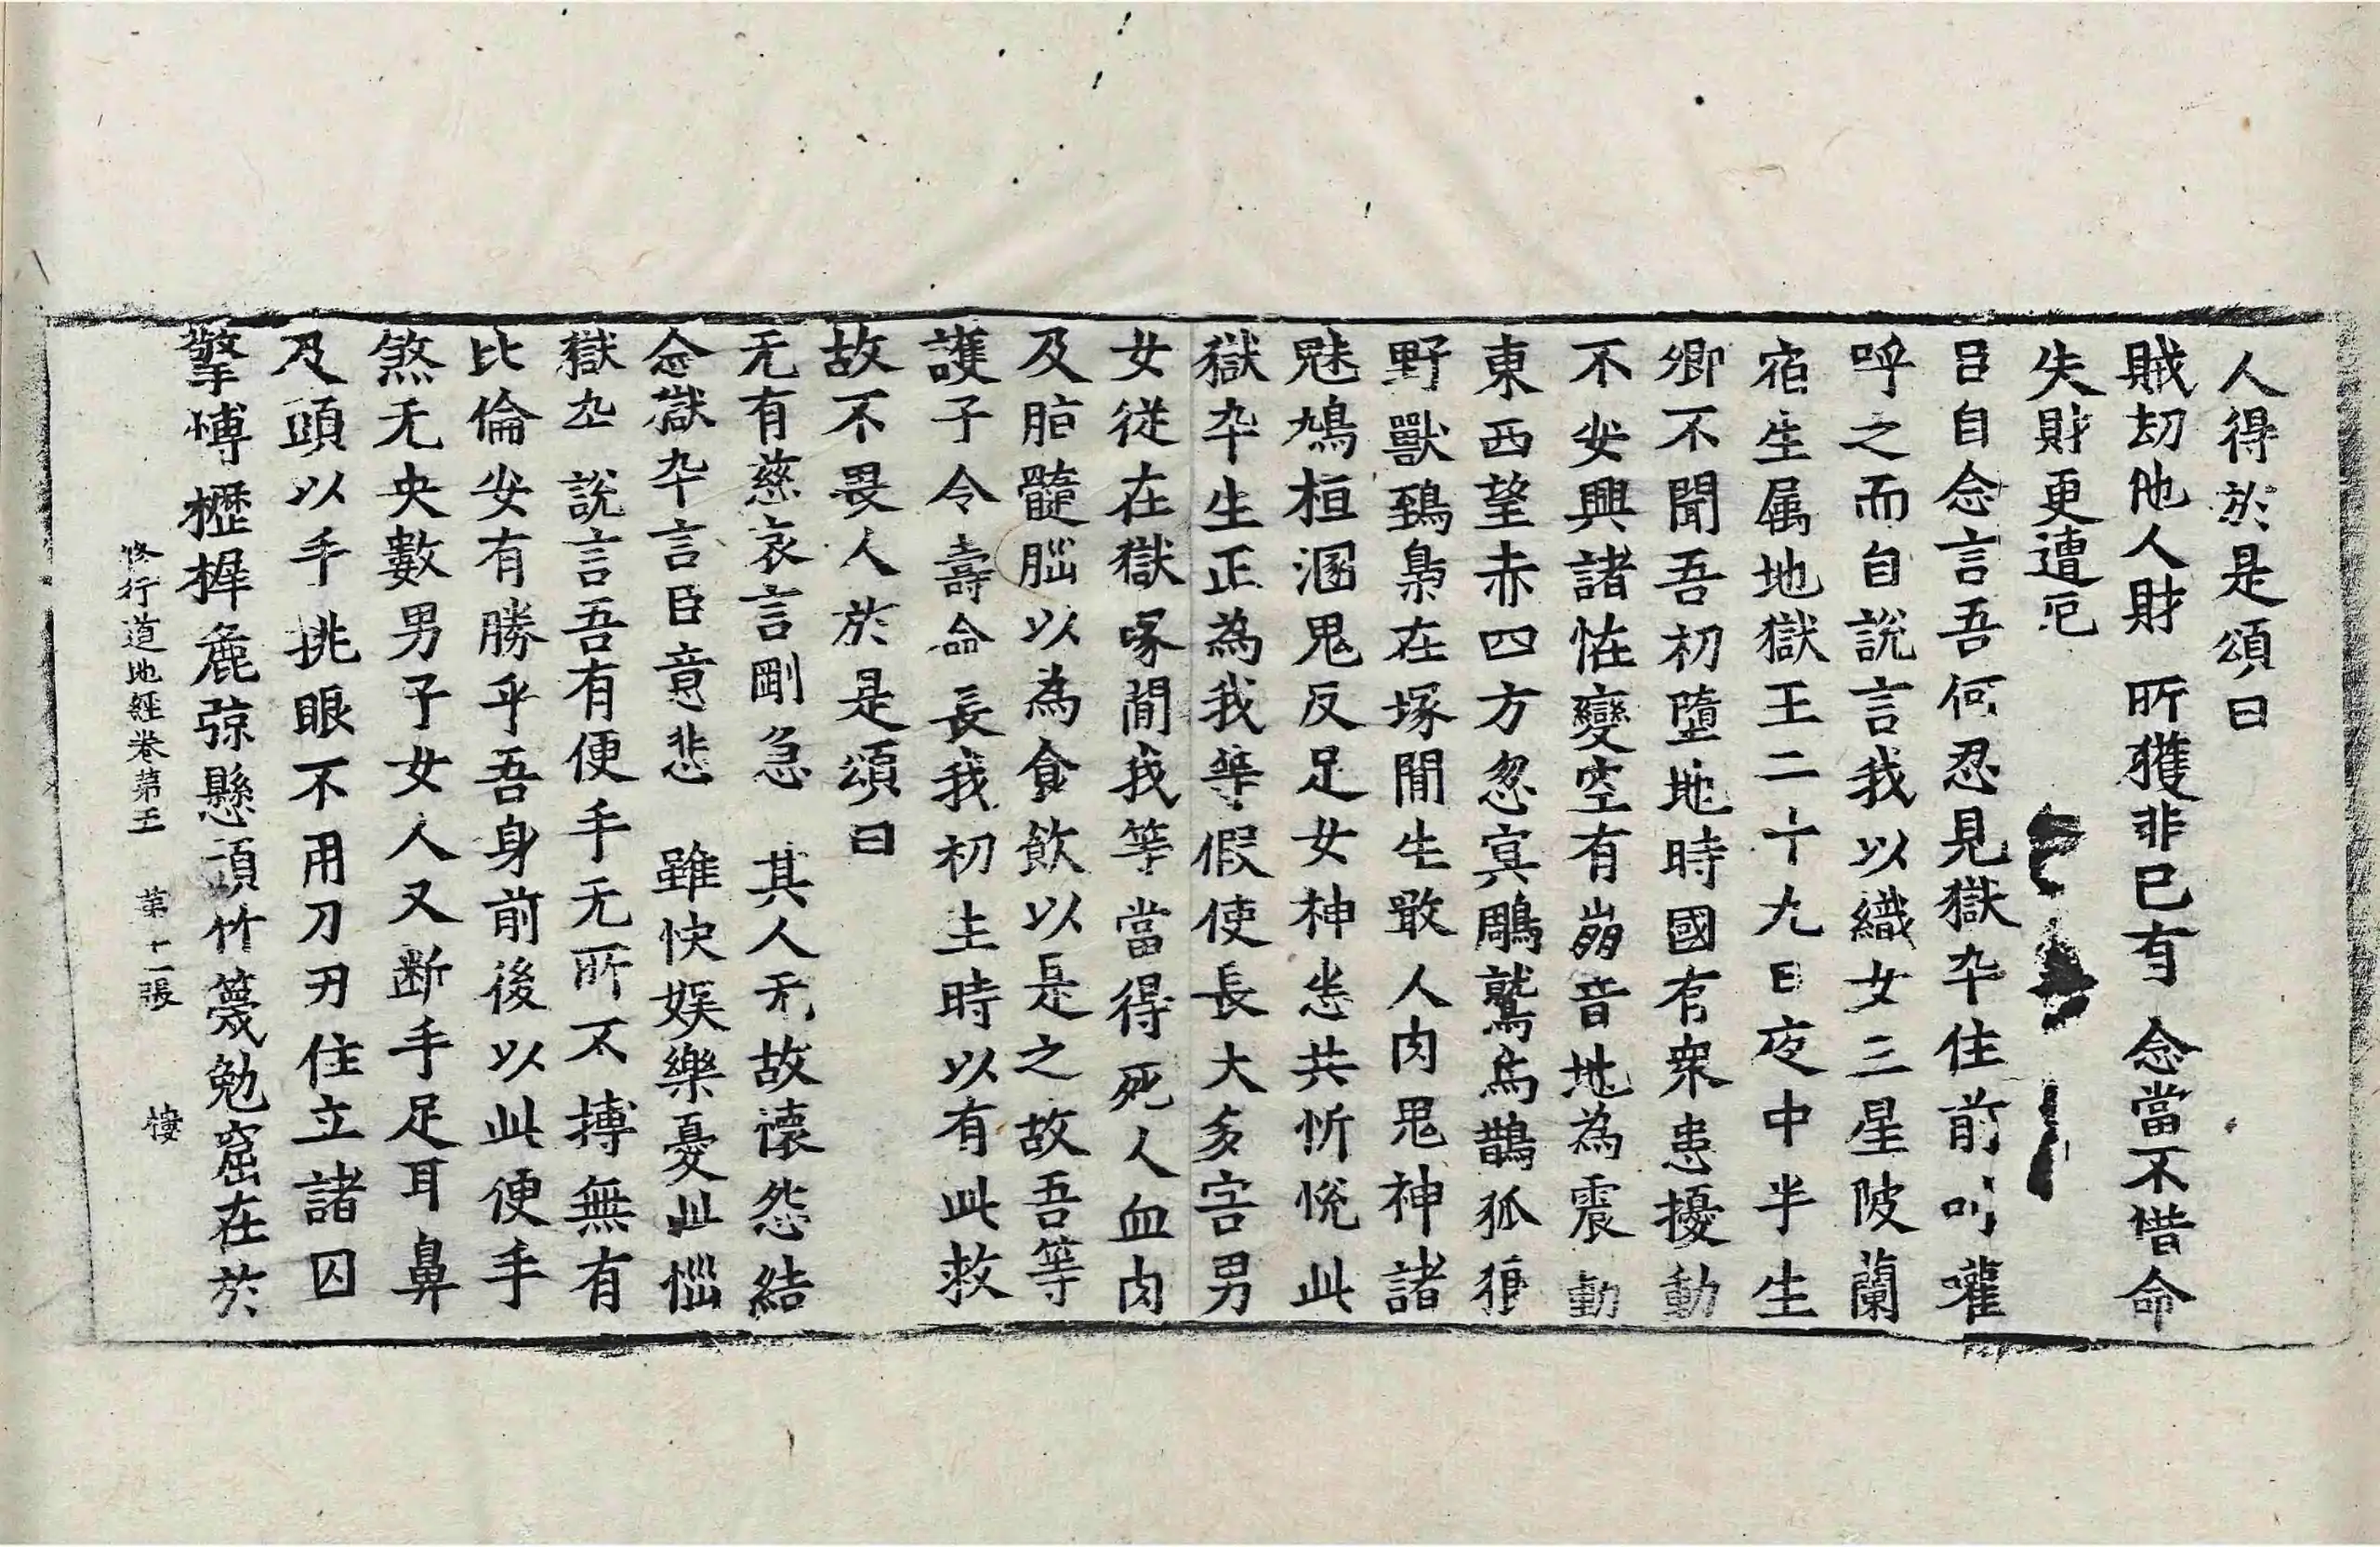 人得於是頌曰
賊刧他人財 所獲非已有 念當不惜命
失財更遭厄
吕自念言吾何忍見獄卒住前 嚾
呼之而自說言我以織女三星陂蘭
宿生属地獄王二十九日夜中半生
卿不聞吾初墮地時國有衆患擾動
不安興諸恠變空有崩音地為震動
東西望赤四方忽㝠鵰鷲烏鵲狐狼
野獸鵄梟在塚間生敢人肉鬼神諸
魅鳩桓溷鬼反足女神恙共忻恱此
獄卒生正為我等假使長大多害男
女從在獄啄間我等當得死人血肉
及脂髓腦以為食飲以是之故吾等
護子令壽命長我初生時以有此救
故不畏人於是頌曰
无有慈哀言剛急 其人无故懷怨結
念獄卒言臣意悲 雖快娱樂憂此惱
獄卒說言吾有便手无所不搏無有
比倫安有勝乎吾身前後以此便手
煞无央數男子女人又断手足耳鼻
及頭以手挑眼不用刀刃住立諸囚
擎愽櫪㮰麁弶懸頭竹篾勉窟在於
修行道地經卷苐王 苐十二張 棲